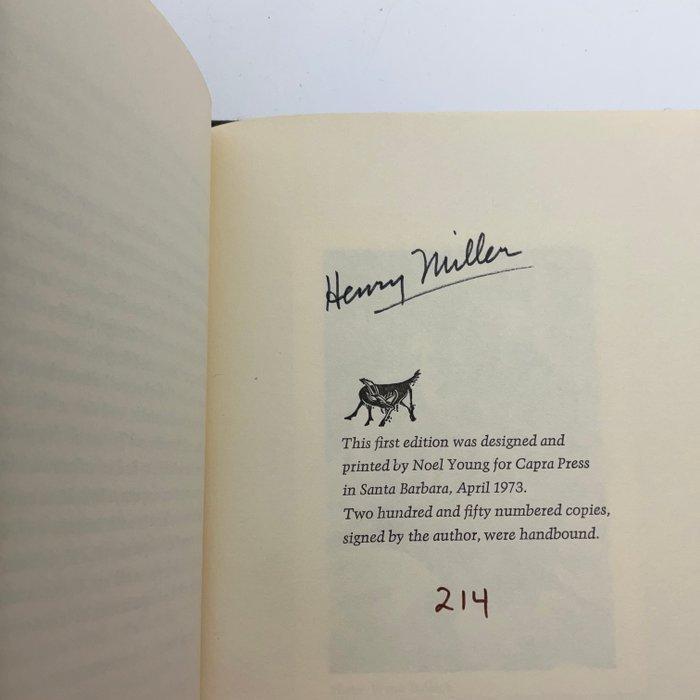 Henry Miller
This first edition was designed and
printed by Noel Young for Capra Press
in Santa Barbara, April 1973.
Two hundred and fifty numbered copies,
signed by the author, were handbound.
214